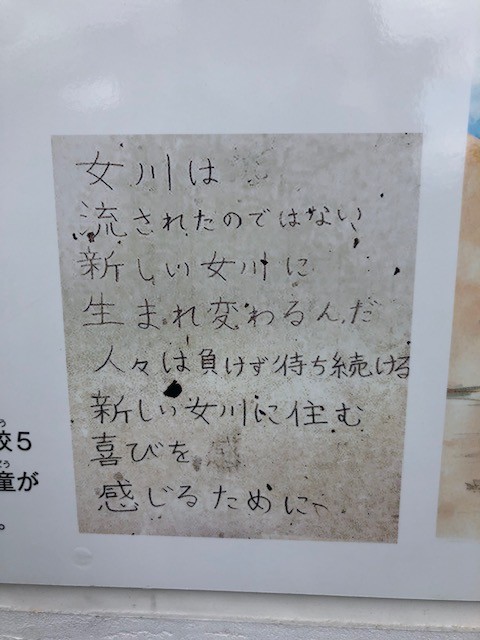 女川は
流されたのではない
新しい女川に
生まれ変わるんだ
人々は負けず待ち続ける
新しい女川に住む
喜びを
感じるために
校5
童が
。